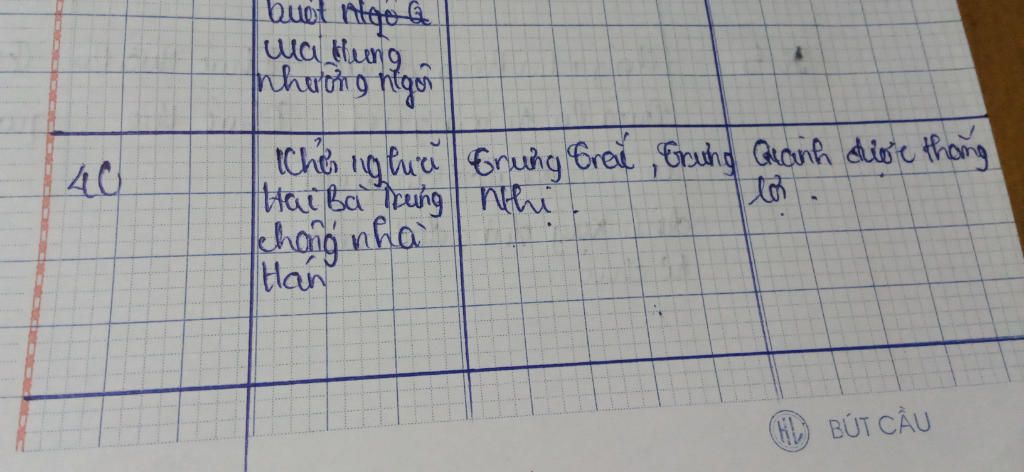 buột ngô Q
ưa Hưng
nhường ngôi
40
Khởi nghĩa
Hai Bà Trưng
chống nhà
Hán
Trưng Trắc, Trưng
Nhị.
Giành được thắng
lợi.
HL BÚT CẦU